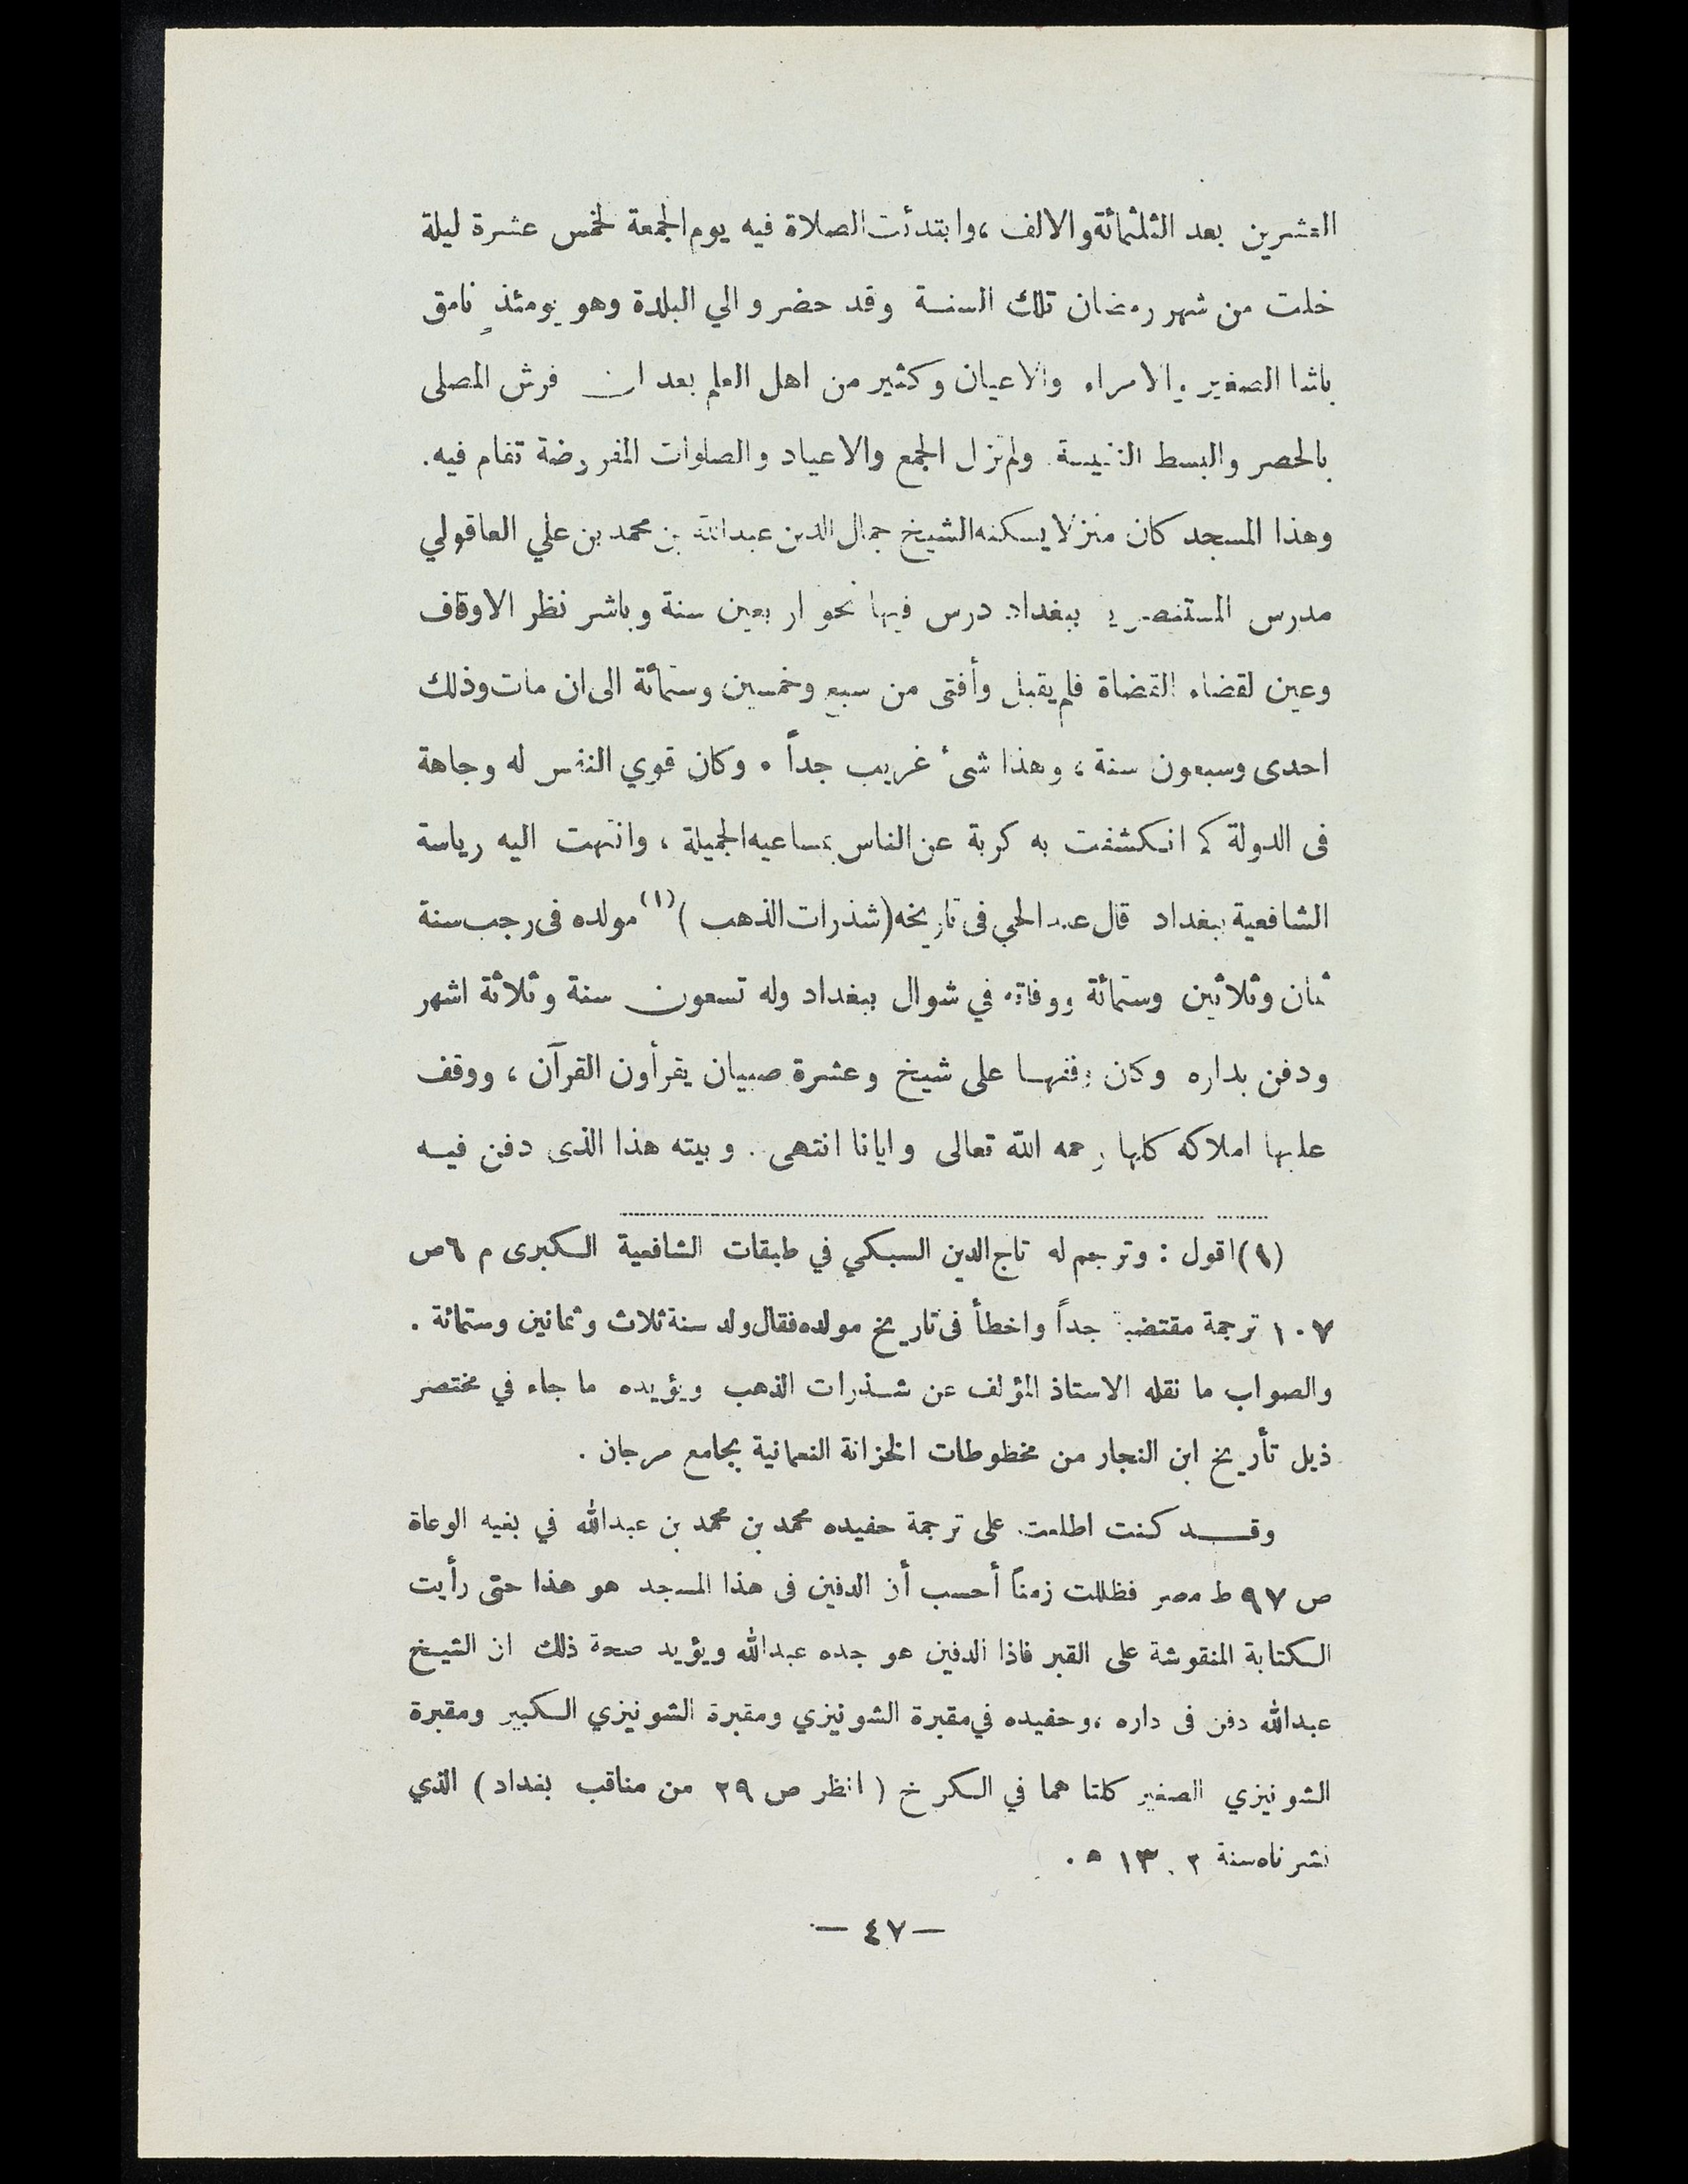 العشرين بعد الثلثمائة والالف ، وابتدئت الصلاة فيه يوم الجمعة لخمس عشرة ليلة
خلت من شهر رمضان تلك السنة وقد حضر والي البلدة وهو يومئذٍ نامق
باشا الصغير والامراء والاعيان وكثير من اهل العلم بعد ان فرش المصلى
بالحصر والبسط النفيسة ولم تزل الجمع والاعياد والصلوات المفروضة تقام فيه .
وهذا المسجد كان منزلا يسكنه الشيخ جمال الدين عبدالله بن محمد بن علي العاقولي
مدرس المستنصرية ببغداد درس فيها نحو اربعين سنة وباشر نظر الاوقاف
وعين لقضاء القضاة فلم يقبل وأفتى من سبع وخمسين وستمائة الى ان مات وذلك
احدى وسبعون سنة ، وهذا شئ غريب جداً . وكان قوي النفس له وجاهة
فى الدولة كم انكشفت به كربة عن الناس بمساعيه الجميلة ، وانتهت اليه رياسة
الشافعية ببغداد قال عبد الحي فى تاريخه (شذرات الذهب) (١) مولده فى رجب سنة
ثمان وثلاثين وستمائة ووفاته في شوال ببغداد وله تسعون سنة وثلاثة اشهر
ودفن بداره وكان وقفها على شيخ وعشرة صبيان يقرأون القرآن ، ووقف
عليها املاكه كلها رحمه الله تعالى وايانا انتهى . وبيته هذا الذى دفن فيه
(١) اقول : وترجم له تاج الدين السبكي في طبقات الشافعية الكبرى م ٦ ص
١٠٧ ترجمة مقتضبة جداً واخطأ فى تاريخ مولده فقال ولد سنة ثلاث وثمانين وستمائة .
والصواب ما نقله الاستاذ المؤلف عن شذرات الذهب ويؤيده ما جاء في مختصر
ذيل تأريخ ابن النجار من مخطوطات الخزانة النعمانية بجامع مرجان .
وقد كنت اطلعت على ترجمة حفيده محمد بن محمد بن عبدالله في بغيه الوعاة
ص ٩٧ ط مصر فظللت زمناً أحسب أن الدفين فى هذا المسجد هو هذا حتى رأيت
الكتابة المنقوشة على القبر فاذا الدفين هو جده عبدالله ويؤيد صحة ذلك ان الشيخ
عبدالله دفن فى داره ، وحفيده في مقبرة الشونيزي ومقبرة الشونيزي الكبير ومقبرة
الشونيزي الصغير كلتا هما في الكرخ ( انظر ص ٢٩ من مناقب بغداد ) الذي
نشرناه سنة ١٣٠٢ ه .
— ٤٧ —